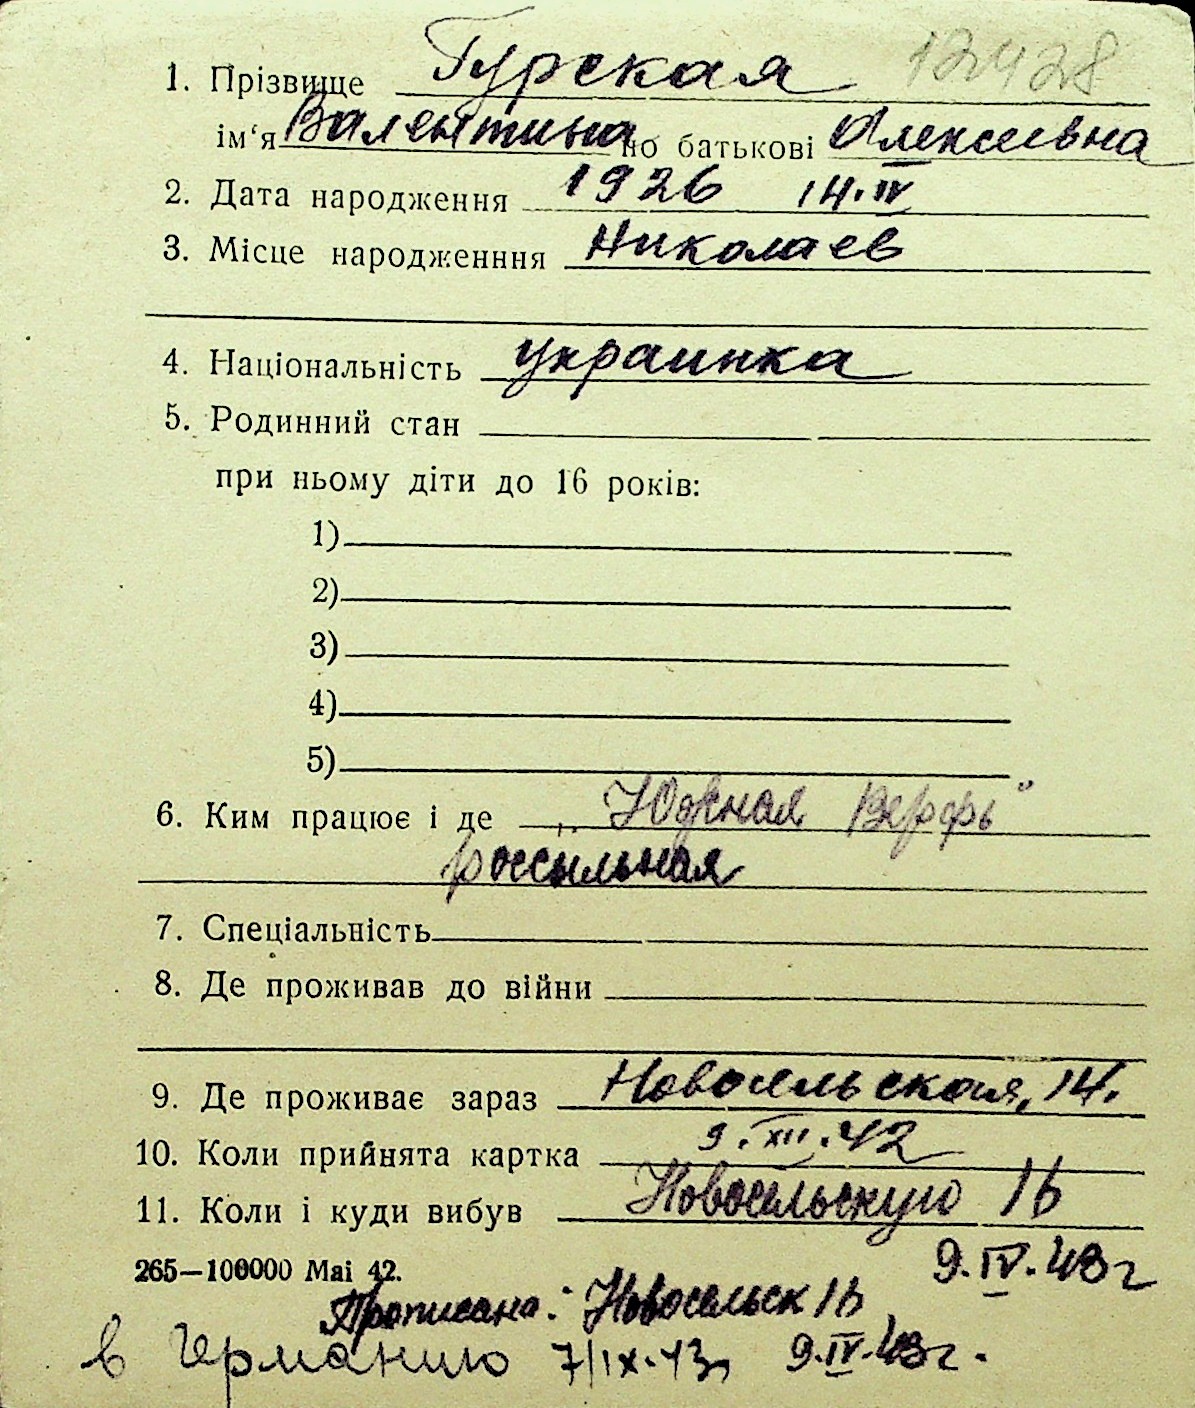 1. Прізвище Гурская 12428
ім‘я Валентина по батькові Алексеевна
2. Дата народження 1926 14.IV
3. Місце народженння Николаев
4. Національність украинка
5. Родинний стан
при ньому діти до 16 років:
1)
2)
3)
4)
5)
6. Ким працює і де „Южная Верфь"
россыльная
7. Спеціальність
8. Де проживав до війни
9. Де проживає зараз Новосельская, 14.
10. Коли прийнята картка 9.XII.42
11. Коли і куди вибув Новосельскую 16
265—100000 Mai 42. 9.IV.43г
Прописана: Новосельск 16
в Германию 7/IX.43 9.IV.43г.